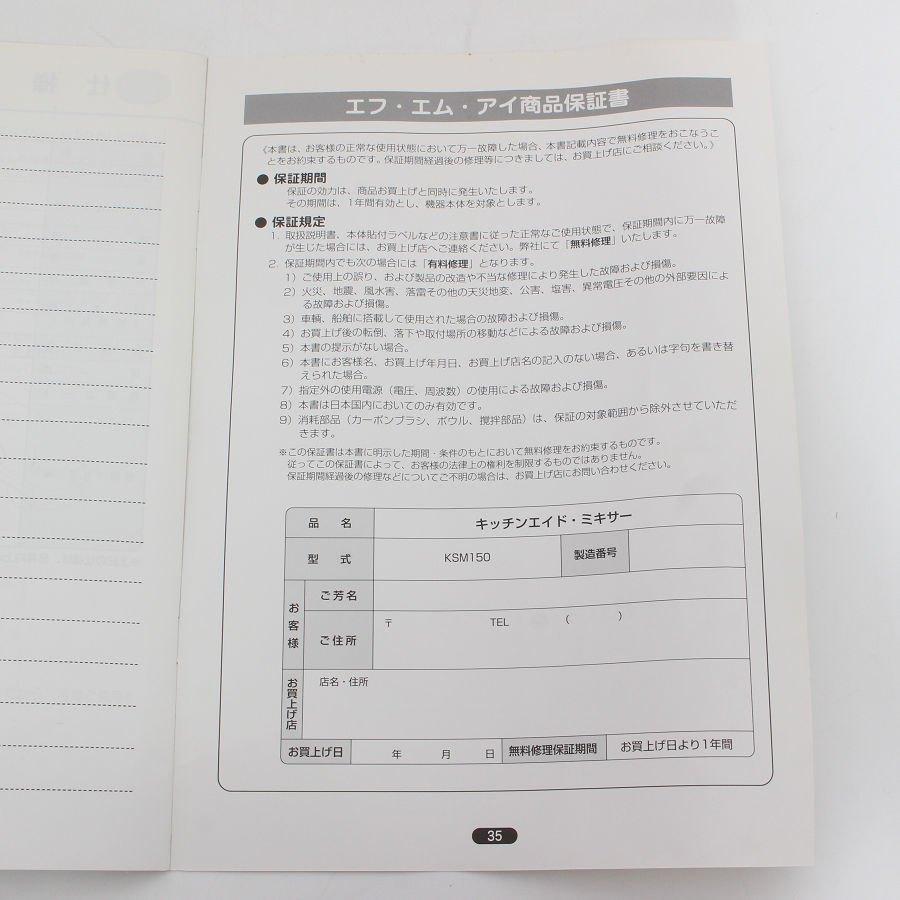 エフ・エム・アイ商品保証書
《本書は、お客様の正常な使用状態において万一故障した場合、本書記載内容で無料修理をおこなうこ
とをお約束するものです。保証期間経過後の修理等につきましては、お買上げ店にご相談ください。》
● 保証期間
保証の効力は、商品お買上げと同時に発生いたします。
その期間は、1年間有効とし、機器本体を対象とします。
● 保証規定
1. 取扱説明書、本体貼付ラベルなどの注意書に従った正常なご使用状態で、保証期間内に万一故障
が生じた場合には、お買上げ店へご連絡ください。弊社にて「無料修理」いたします。
2. 保証期間内でも次の場合には「有料修理」となります。
1）ご使用上の誤り、および製品の改造や不当な修理により発生した故障および損傷。
2）火災、地震、風水害、落雷その他の天災地変、公害、塩害、異常電圧その他の外部要因によ
る故障および損傷。
3）車輌、船舶に搭載して使用された場合の故障および損傷。
4）お買上げ後の転倒、落下や取付場所の移動などによる故障および損傷。
5）本書の提示がない場合。
6）本書にお客様名、お買上げ年月日、お買上げ店名の記入のない場合、あるいは字句を書き替
えられた場合。
7）指定外の使用電源（電圧、周波数）の使用による故障および損傷。
8）本書は日本国内においてのみ有効です。
9）消耗部品（カーボンブラシ、ボウル、撹拌部品）は、保証の対象範囲から除外させていただ
きます。
※この保証書は本書に明示した期間・条件のもとにおいて無料修理をお約束するものです。
従ってこの保証書によって、お客様の法律上の権利を制限するものではありません。
保証期間経過後の修理などについてご不明の場合は、お買上げ店にお問い合わせください。
品 名 キッチンエイド・ミキサー
型 式 KSM150 製造番号
お客様 ご芳名
ご住所 〒 TEL （ ）
お買上げ店 店名・住所
お買上げ日 年 月 日 無料修理保証期間 お買上げ日より1年間
35